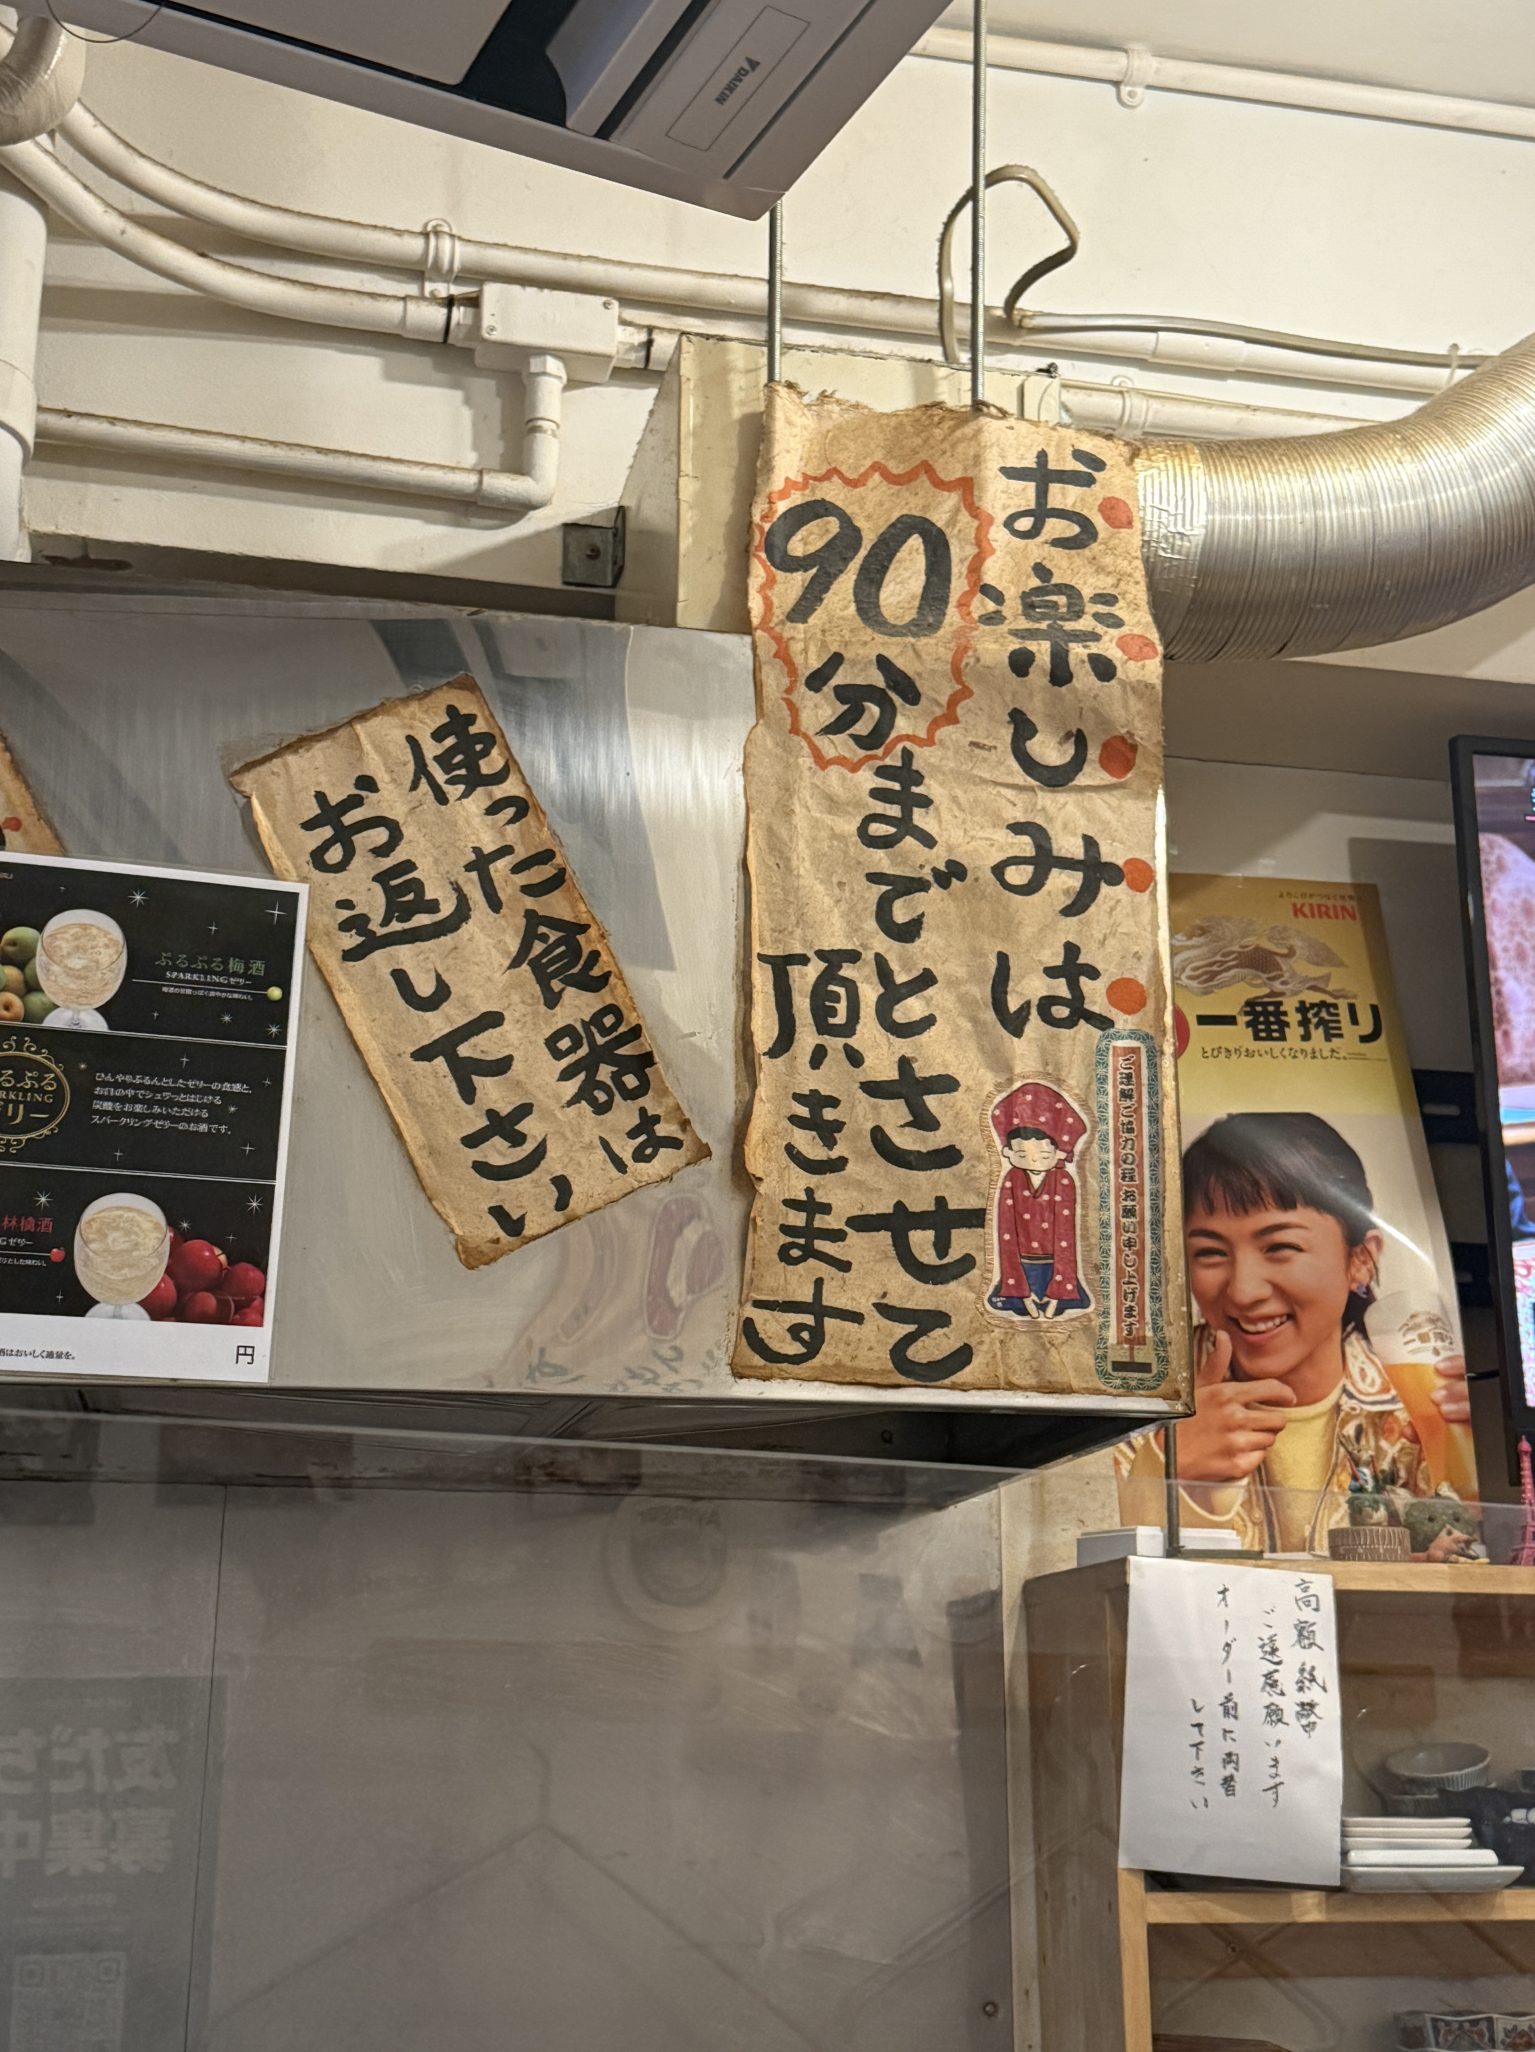 DAIKIN
お楽しみは
90分までとさせて
頂きます
ご理解ご協力の程 お願い申し上げます
使った食器は
お返し下さい
ぷるぷる梅酒
SPARKLINGゼリー
ひんやりぷるんとしたゼリーの食感と、
お口の中でシュワっとはじける
炭酸をお楽しみいただける
スパークリングゼリーのお酒です。
林檎酒
ゼリー
酒はおいしく適量を。
円
KIRIN
一番搾り
とびきりおいしくなりました。
一番搾り
高額紙幣
ご遠慮願います
オーダー前に両替
して下さい
友だち
募集中